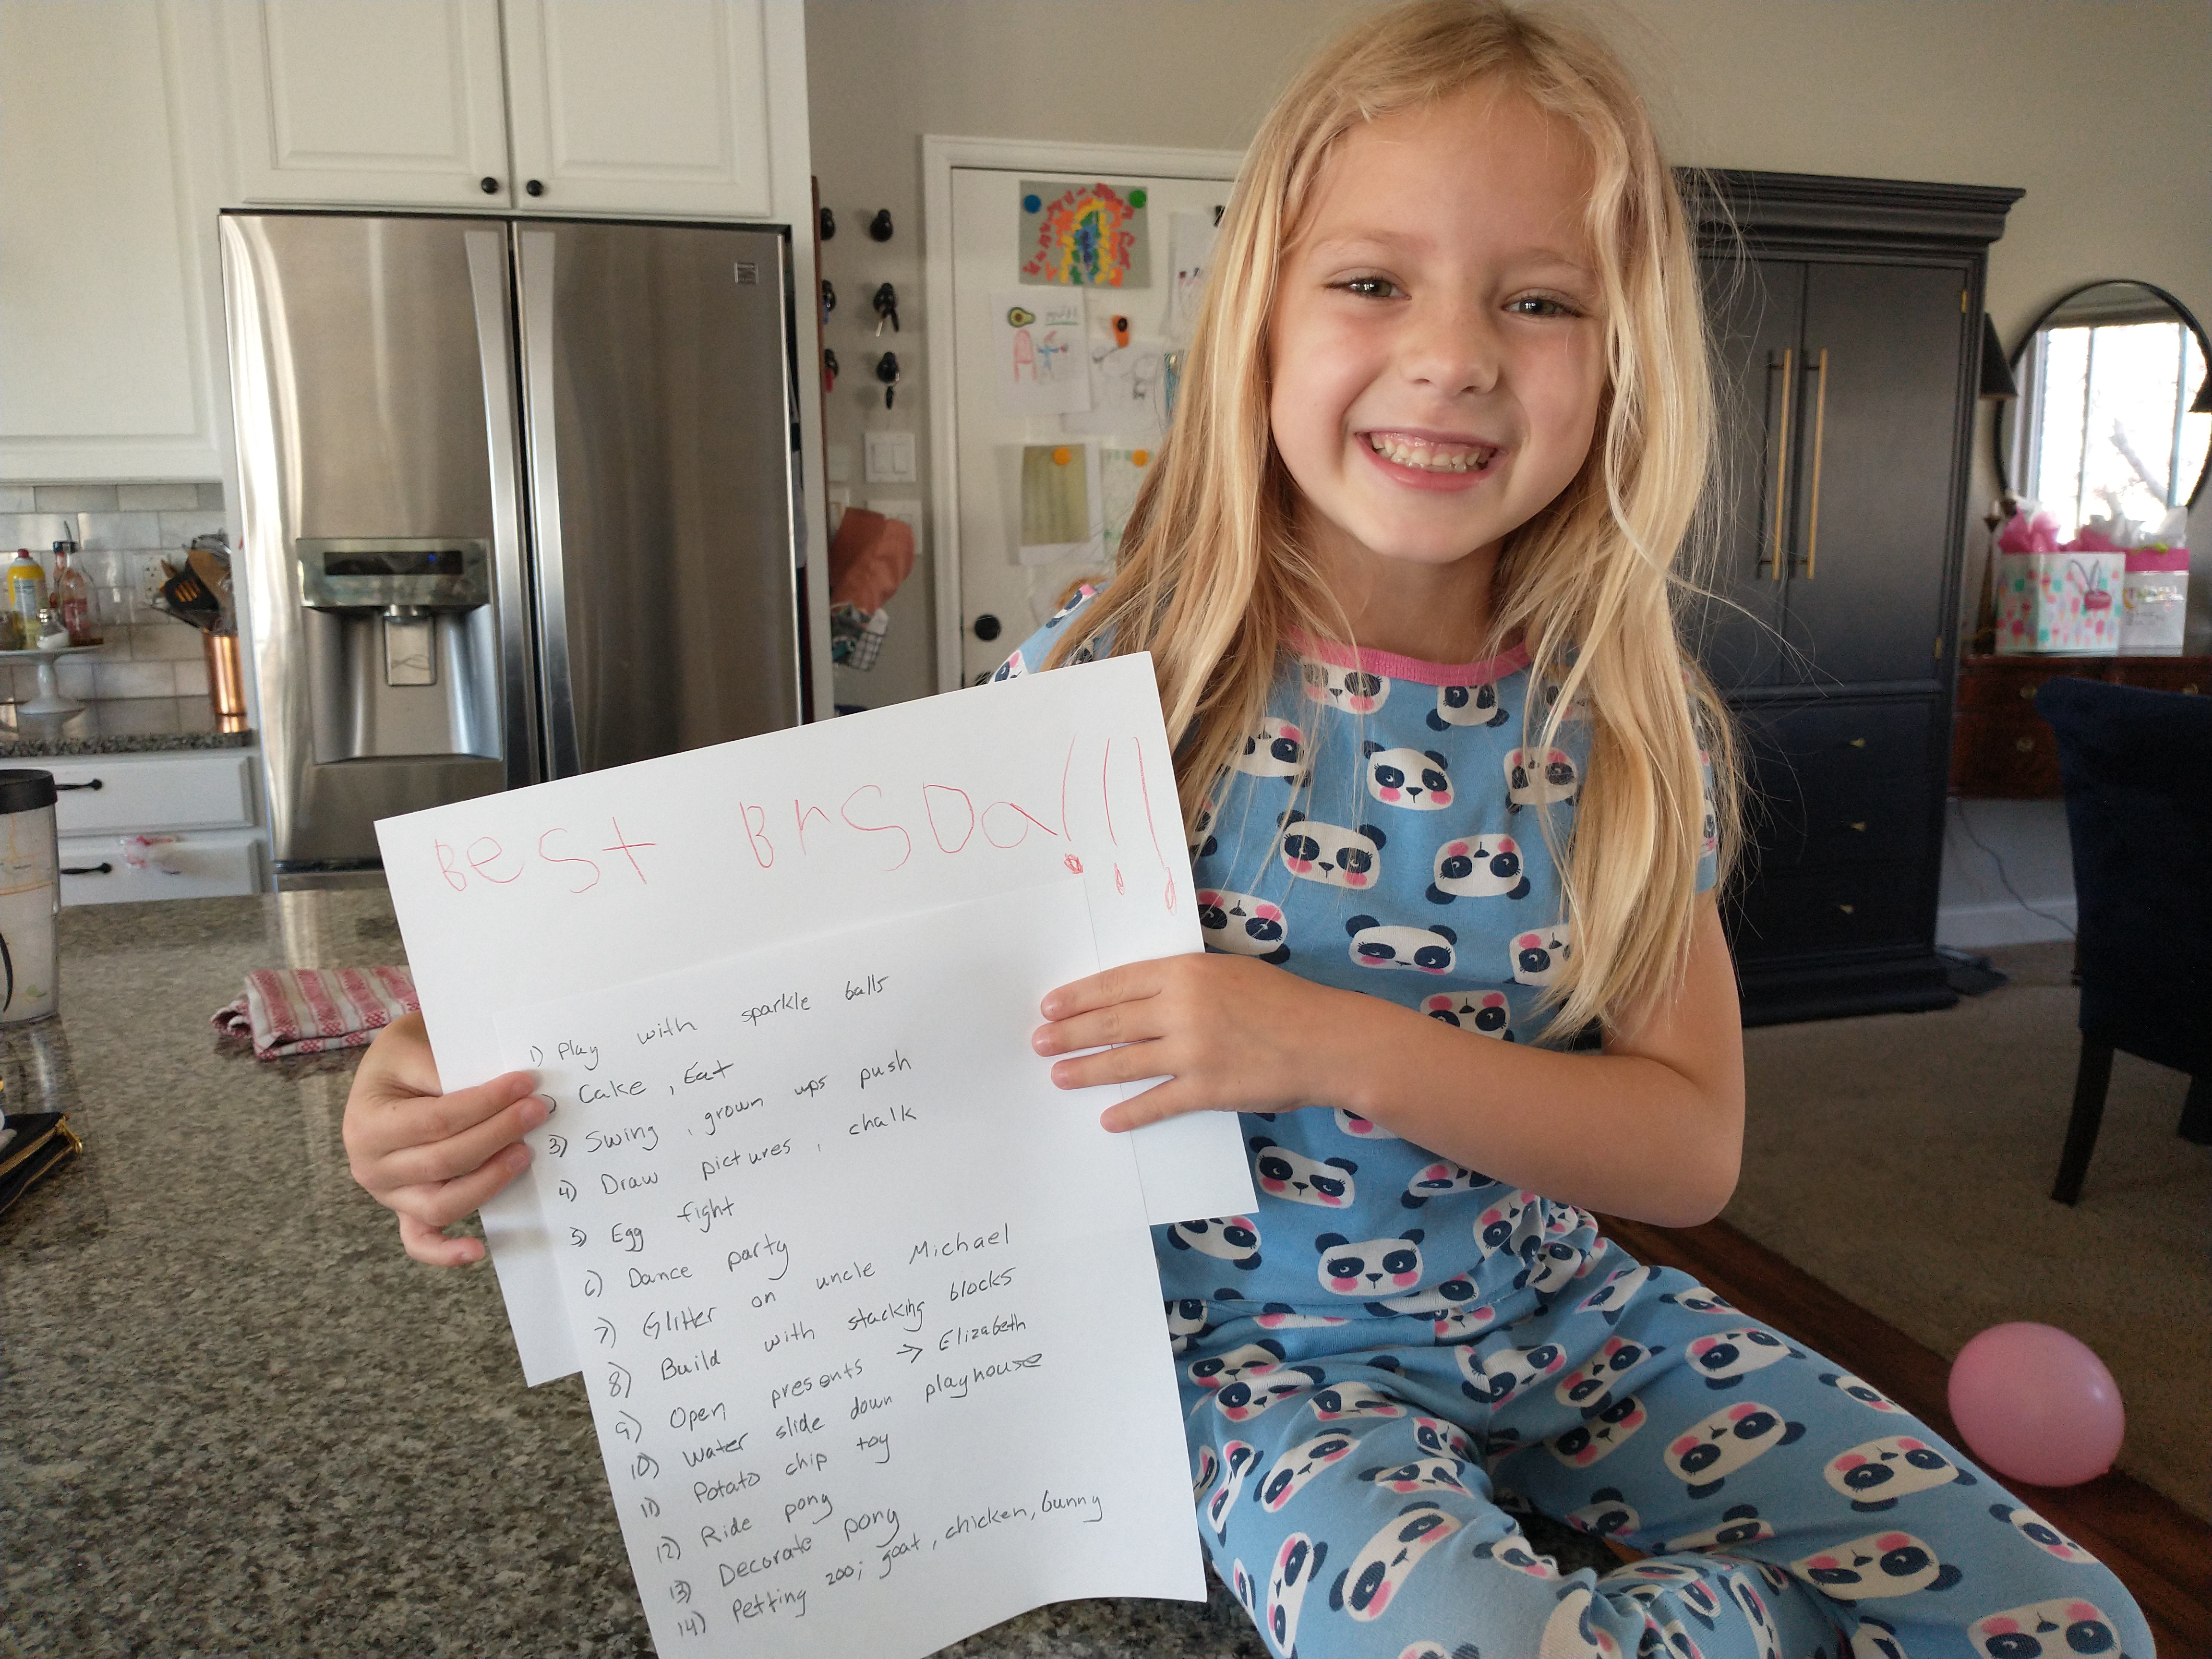 Best BrsDa!!!
1) Play with sparkle balls
) Cake, Eat
3) Swing, grown ups push
4) Draw pictures, chalk
5) Egg fight
6) Dance party
7) Glitter on uncle Michael
8) Build with stacking blocks
9) Open presents → Elizabeth
10) Water slide down playhouse
11) Potato chip toy
12) Ride pony
13) Decorate pony
14) Petting zoo; goat, chicken, bunny